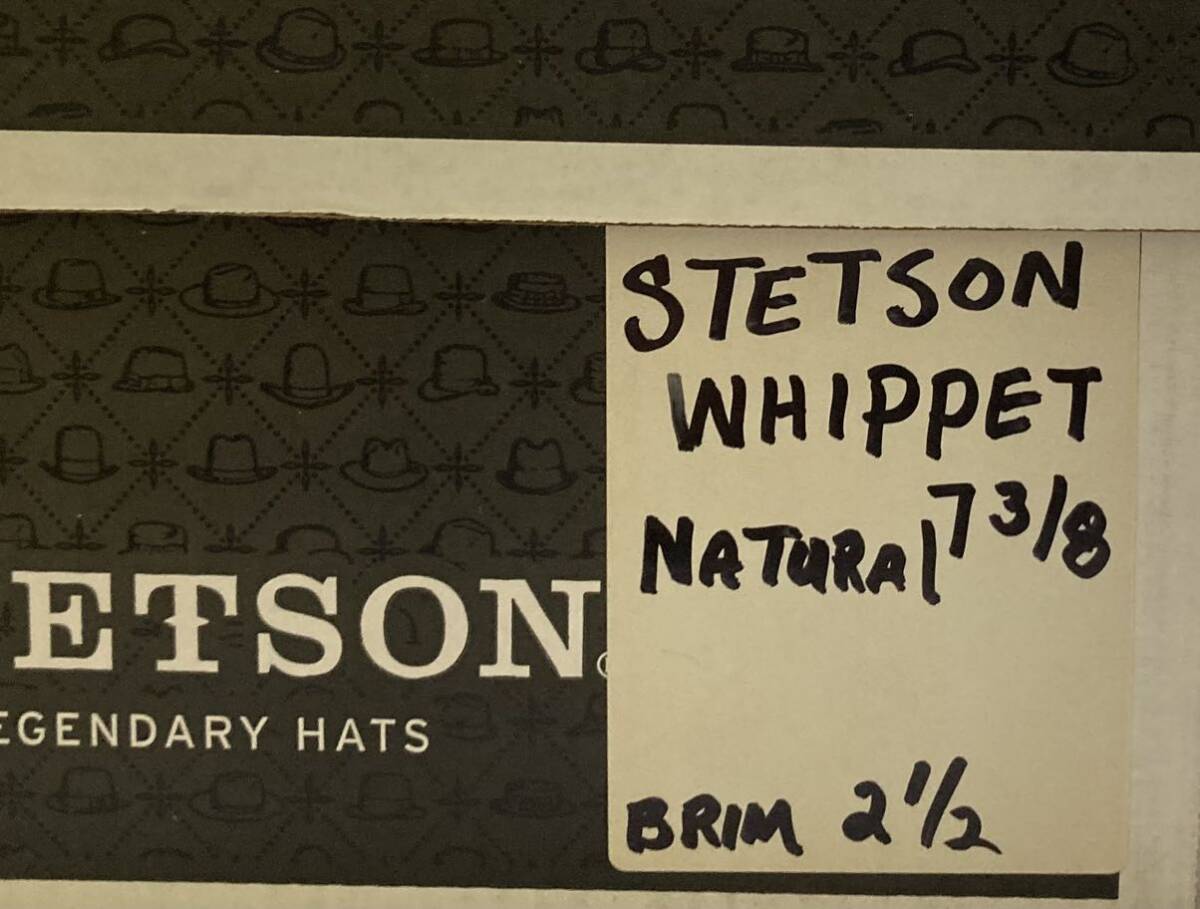 ETSON
EGENDARY HATS
STETSON
WHIPPET
NATURAL 7 3/8
BRIM 2 1/2